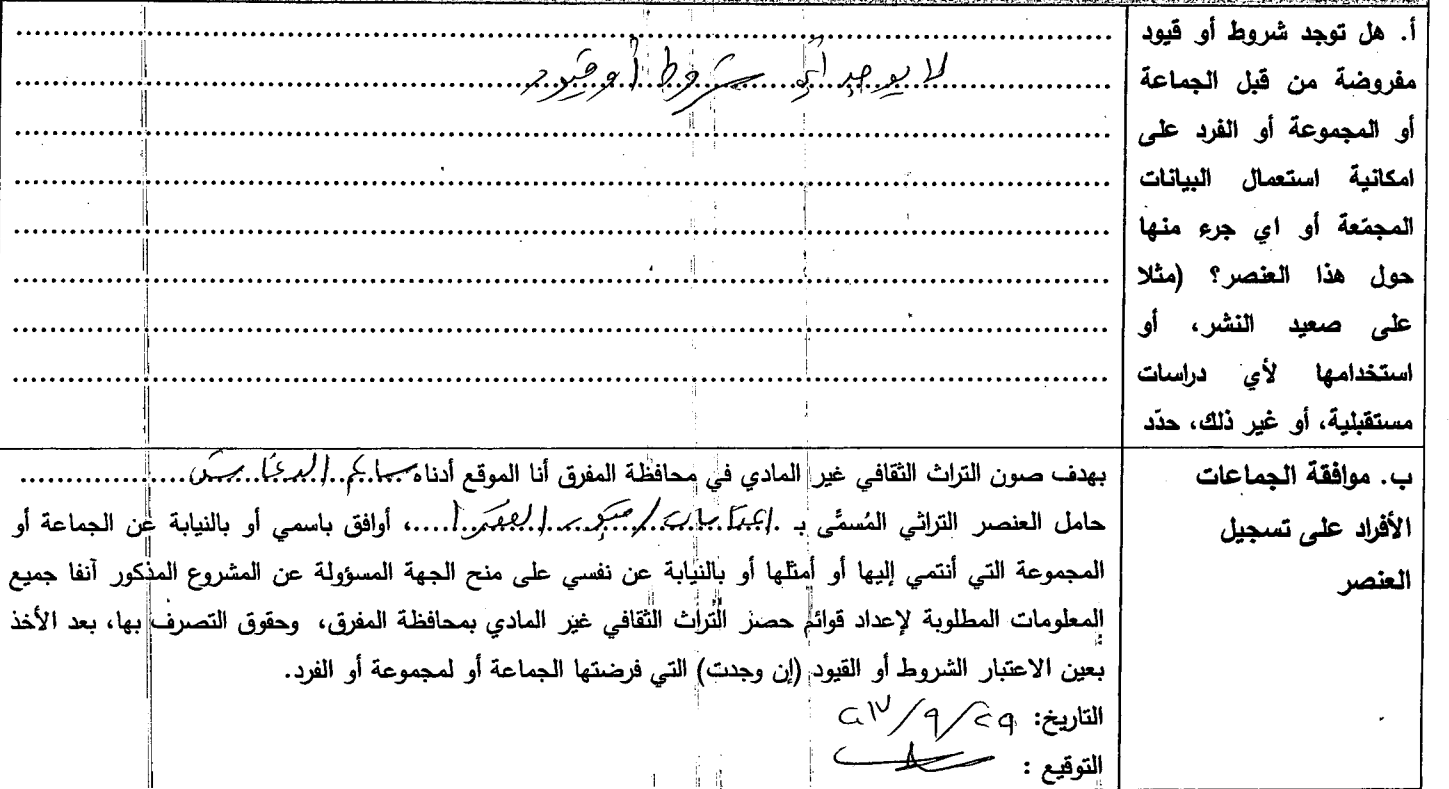 أ. هل توجد شروط أو قيود
مفروضة من قبل الجماعة
أو المجموعة أو الفرد على
امكانية استعمال البيانات
المجمّعة أو اي جرء منها
حول هذا العنصر؟ (مثلا
على صعيد النشر، أو
استخدامها لأي دراسات
مستقبلية، أو غير ذلك، حدّد
لا يوجد أي شروط أو قيود
ب. موافقة الجماعات
الأفراد على تسجيل
العنصر
بهدف صون التراث الثقافي غير المادي في محافظة المفرق أنا الموقع أدناه
حامل العنصر التراثي المُسمَّى بـ ، أوافق باسمي أو بالنيابة عن الجماعة أو
المجموعة التي أنتمي إليها أو أمثلها أو بالنيابة عن نفسي على منح الجهة المسؤولة عن المشروع المذكور آنفا جميع
المعلومات المطلوبة لإعداد قوائم حصر التراث الثقافي غير المادي بمحافظة المفرق، وحقوق التصرف بها، بعد الأخذ
بعين الاعتبار الشروط أو القيود (إن وجدت) التي فرضتها الجماعة أو لمجموعة أو الفرد.
التاريخ:
التوقيع :